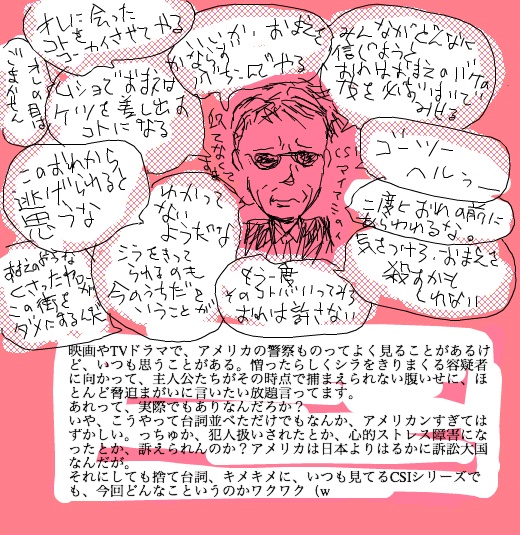 オレに会った
コトを
コーカイさせてやる
いいか、おまえを
かならず
ブチこんでやる
みんながどんなに
信じようと
おれはおまえのバケの
皮を必ずはいで
みせる
オレの目は
ごまかせん
ムショでおまえは
ケツを差し出す
コトになる
似てなくて
CSIマイアミの
ゴーツー
ヘルぅー
このおれから
逃げられると
思うな
わかって
ない
ようだな
シラをきって
られるのも
今のうちだと
いうことが
二度とおれの前に
あらわれるな。
気をつけろ、おまえを
殺すかも
しれない
おまえのような
くさったヤローが
この街を
ダメにするんだ
もう一度
そのコトバいってみろ
おれは許さない
映画やTVドラマで、アメリカの警察ものってよく見ることがあるけ
ど、いつも思うことがある。憎ったらしくシラをきりまくる容疑者
に向かって、主人公たちがその時点で捕まえられない腹いせに、ほ
とんど脅迫まがいに言いたい放題言ってます。
あれって、実際でもありなんだろか？
いや、こうやって台詞並べただけでもなんか、アメリカンすぎては
ずかしい。っちゅか、犯人扱いされたとか、心的ストレス障害にな
ったとか、訴えられんのか？アメリカは日本よりはるかに訴訟大国
なんだが。
それにしても捨て台詞、キメキメに、いつも見てるCSIシリーズで
も、今回どんなこというのかワクワク（w